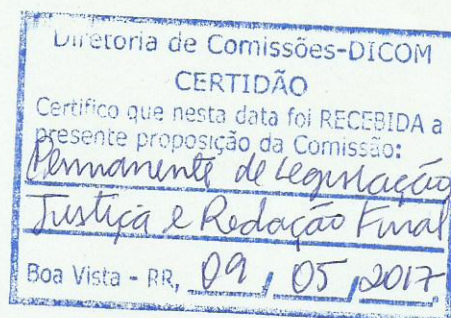 Diretoria de Comissões-DICOM
CERTIDÃO
Certifico que nesta data foi RECEBIDA a
presente proposição da Comissão:
Permanente de Legislação
Justiça e Redação Final
Boa Vista - RR, 09 / 05 / 2017